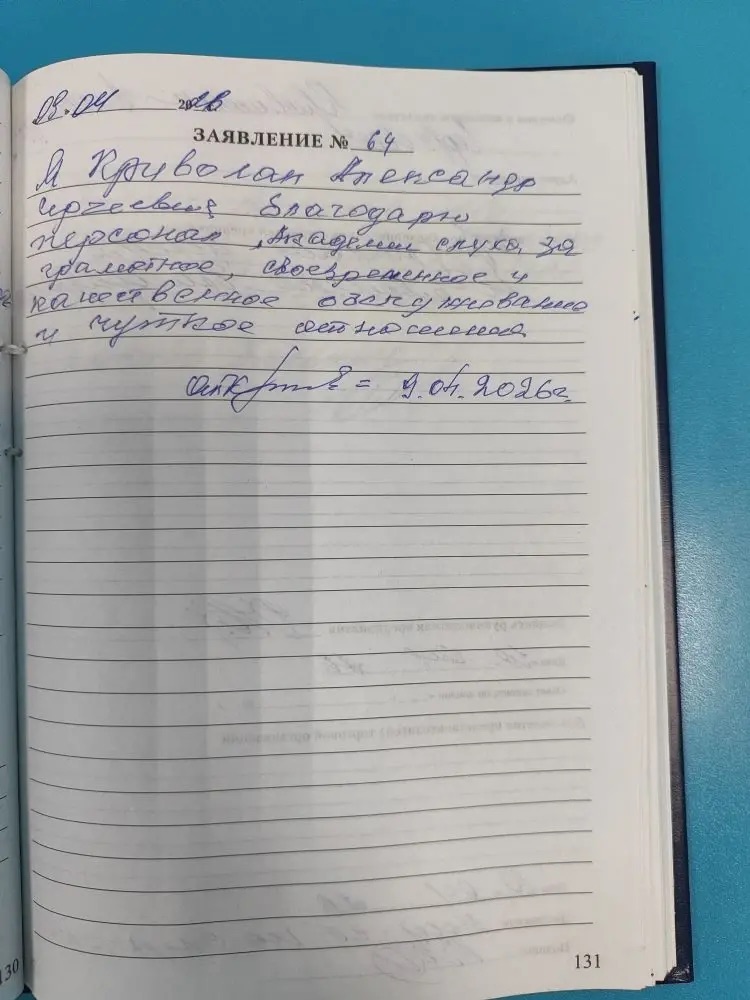 09.04 2026
ЗАЯВЛЕНИЕ № 64
Я Криволап Александр
благодарю
персонал Академии слуха за
грамотное, своевременное и
качественное обслуживание
и чуткое отношение
9.04.2026г.
131
130